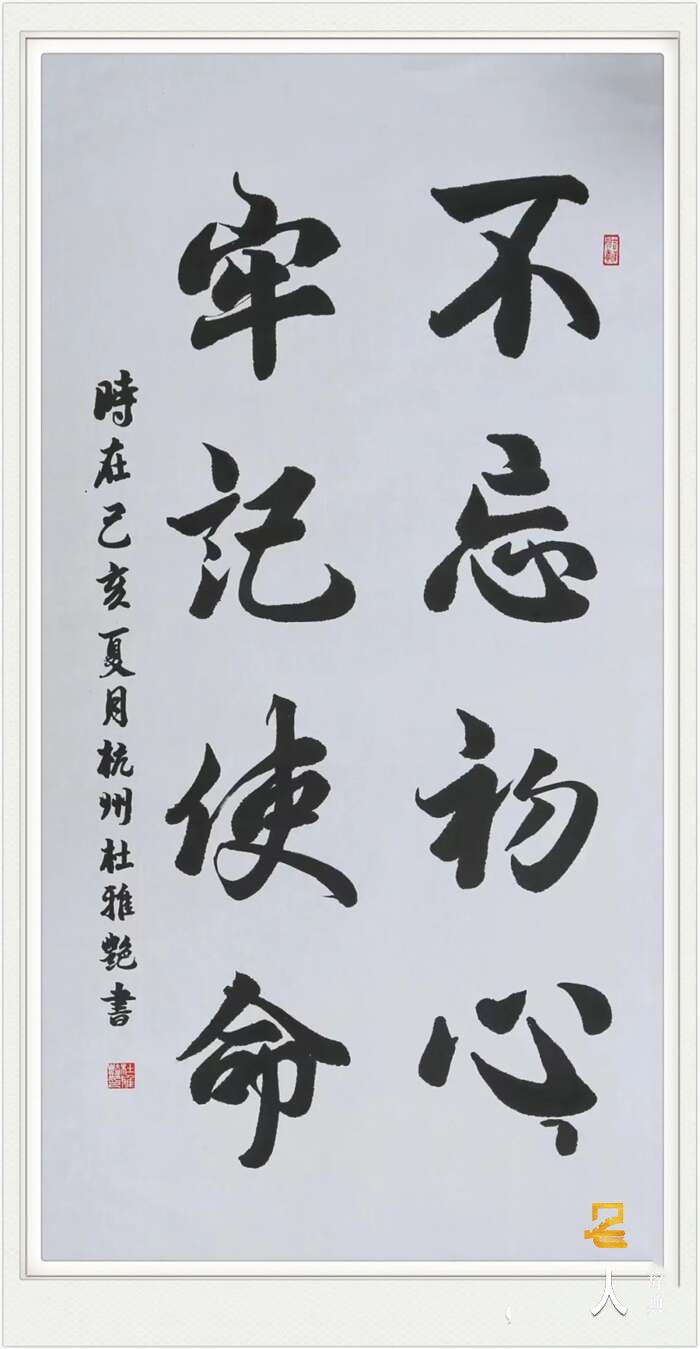 不忘初心
牢记使命
時在己亥夏月杭州杜雅艷書
人